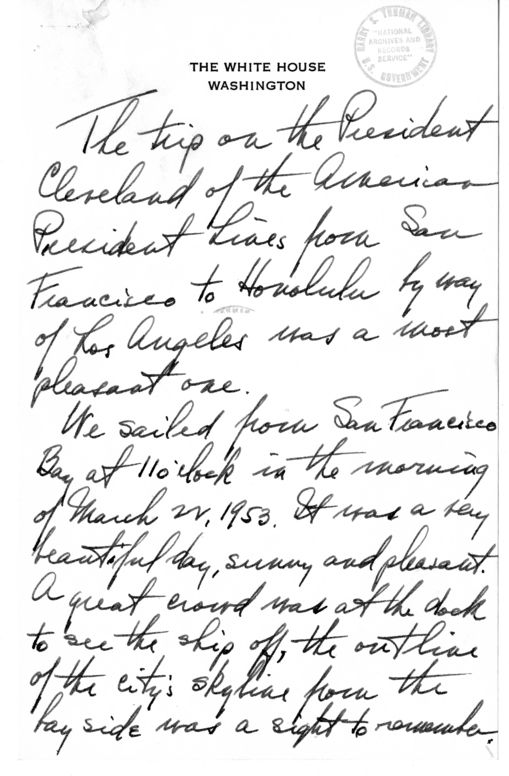 HARRY S. TRUMAN LIBRARY
"NATIONAL
ARCHIVES AND
RECORDS
SERVICE"
U.S. GOVERNMENT
THE WHITE HOUSE
WASHINGTON
The trip on the President
Cleveland of the American
President Lines from San
Francisco to Honolulu by way
of Los Angeles was a most
pleasant one.
We sailed from San Francisco
Bay at 11 o'clock in the morning
of March 22, 1953. It was a very
beautiful day, sunny and pleasant.
A great crowd was at the dock
to see the ship off, the outline
of the city's skyline from the
bay side was a sight to remember.